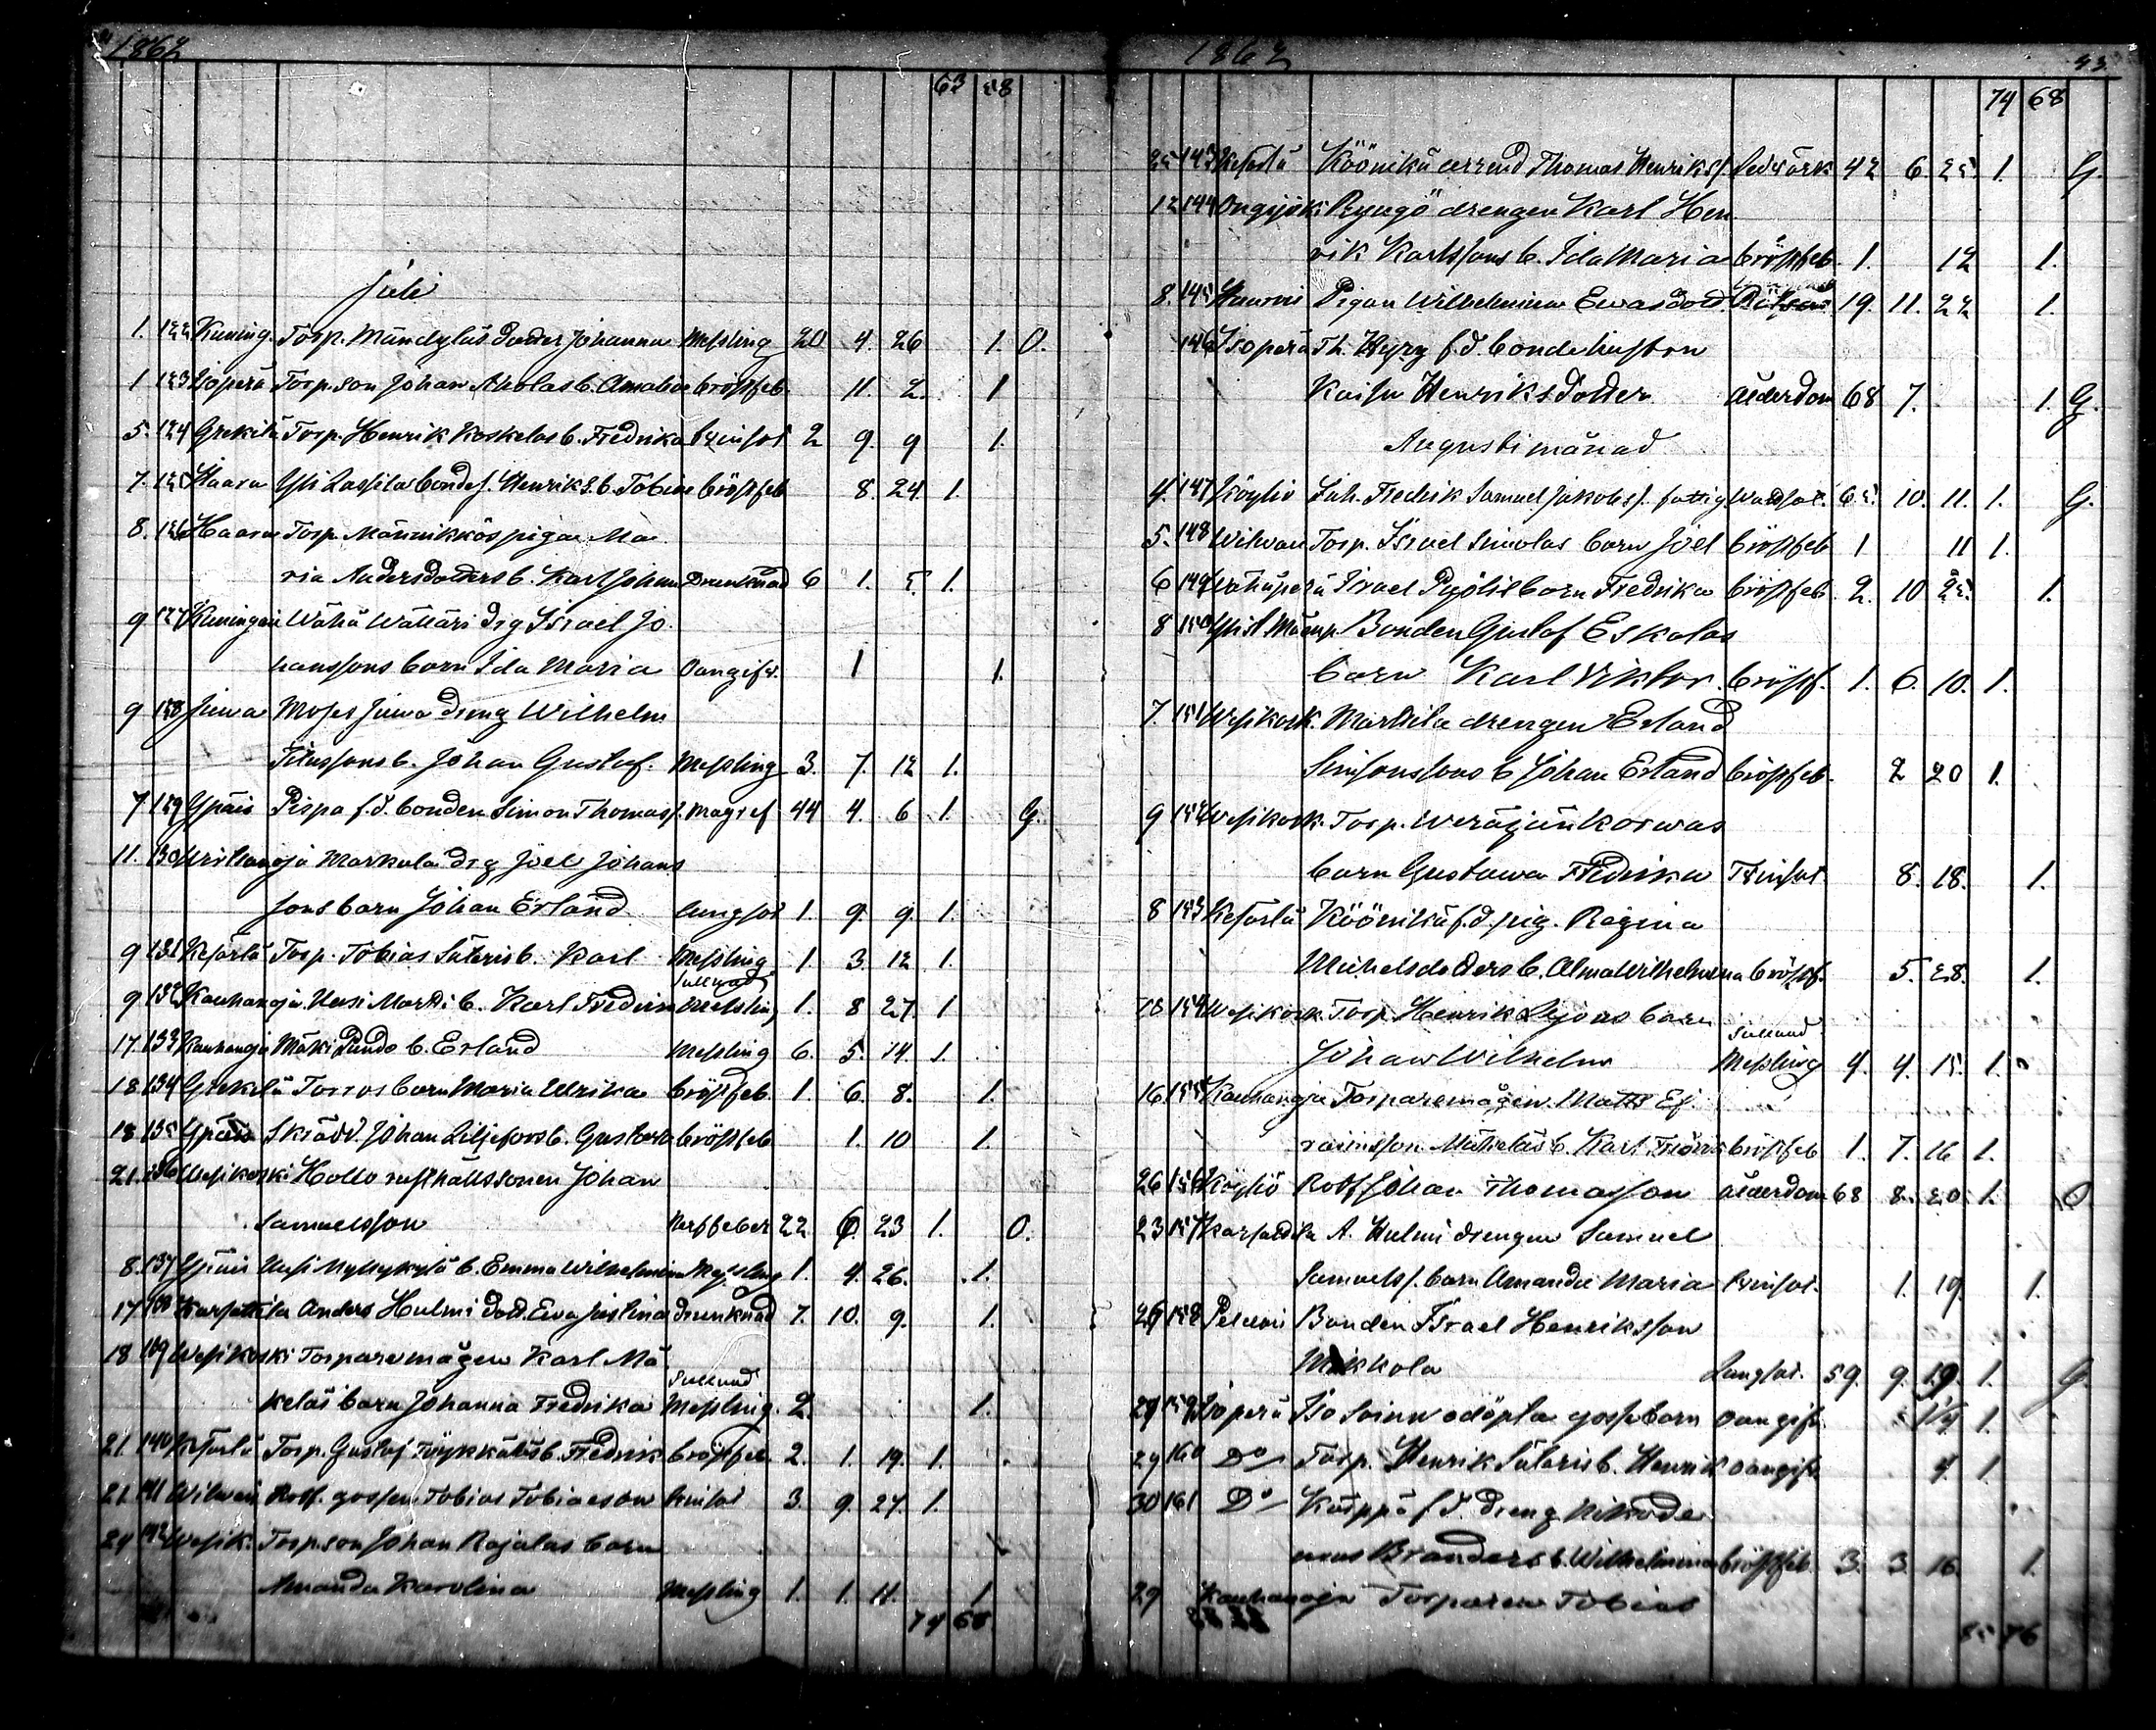 1862
63 58
Juli
1. 122 Kuning. Torp. Mändyläs dotter Johanna Messling 20 4. 26 1. O.
1 123 Isoperä Torp.son Johan Aholas b. Amalia bröstfeb. 11. 2. 1
5. 124 Grekilä Torp. Henrik Koskelas b. Fredrika 2 9. 9 1.
7. 125 Haara Yli Lassila bonde s. Henriks b. Tobias bröstfeb 8. 24 1.
8. 126 Haara Torp. Männikkös pigan Ma
ria Andersdotters b. Karl Johan Drunknad 6 1. 5. 1.
9 127 Kuningas Wähä Wällari drg Israel Jo
hanssons barn Ida Maria Oangifv. 1 1.
9 128 Juwa Moses Juwa dreng Wilhelm
Titussons b. Johan Gustaf. Messling 3. 7. 12 1.
7 129 Ypäis Pispa f.d. bonden Simon Thomass. Magref 44 4. 6 1. G.
11. 130 Markula drg Joel Johans
sons barn Johan Erland lungsot 1. 9. 9. 1.
9 131 Kefärlä Torp. Tobias Säteris b. Karl Messling 1. 3. 12 1.
9 132 Kauhanoja Uusi Martti b. Karl Fredrik Sulknad Messling 1. 8 27. 1
17. 133 Kauhanoja Mäki Pundo b. Erland Messling 6. 5. 14. 1.
18 134 Grekilä Torros barn Maria Ulrika bröstfeb. 1. 6. 8. 1.
18 135 Ypäis Skrädd. Johan Liljefors b. Gustava bröstfeb 1. 10 1.
21. 136 Wesikoski Hollo rusthålls sonen Johan
Samuelsson Nerffeber 22 6. 23 1. O.
8. 137 Ypäis Uusi Nyhykylä b. Emma Wilhelmina Messling 1. 4. 26. 1.
17 138 Karsattila Anders Hulmi dott. Eva Justina drunknad 7. 10. 9. 1.
18 139 Wesikoski Torparemågen Karl Mä
keläs barn Johanna Fredrika Sulknad Messling. 2. 1.
21. 140 Kefärlä Torp. Gustaf Töykkäläs b. Fredrik bröstfeb. 2. 1. 19. 1.
21 141 Rotf. gossen Tobias Tobiasson 3. 9. 27. 1.
24 142 Wesik. Torp.son Johan Rajalas barn
Amanda Karolina Messling 1. 1. 11. 1
74 68
1862 43.
74 68
25 143 Kefärlä Köönikä arrend Thomas Henrikss. 42 6 25. 1. G.
12 144 Ongijoki drengen Karl Hen
rik Karlssons b. Ida Maria bröstfeb. 1. 12 1.
8. 145 Pigan Wilhelmina Evasdott. 19. 11. 22 1.
146 Isoperä Th. Hyry f.d. bonde hustrun
Kaisa Henriksdotter ålderdom 68 7. 1. G.
Augusti månad
4. 147 Köyliö Inh. Fredrik Samuel Jakobss. fattig 65 10. 11. 1. G.
5. 148 Torp. Israel Simolas barn Joel bröstfeb 1 11 1.
6 149 Wähäperä Israel barn Fredrika bröstfeb. 2. 10 25. 1.
8 150 Bonden Gustaf Eskolas
barn Karl Viktor. bröstf. 1. 6. 10. 1.
7. 151 Wesikosk. Marttila drengen Erland
Simsonssons b Johan Erland bröstfeb. 2 20 1.
9 152 Wesikosk. Torp. Weräjänkorwas
barn Gustawa Fredrika 8. 18. 1.
8 153 Kefärlä Köönikä f.d. pig. Regina
Michelsdotters b. Alma Wilhelmina bröstf. 5. 28. 1.
18 154 Wesikosk. Torp. Henrik barn
Johan Wilhelm Sulknad Messling 4. 4. 15. 1.
16. 155 Kauhanoja Torparemågen. Matts Ef
raimsson Mattiläs b. Karl Fredrik bröstfeb 1. 7. 16 1.
26 156 Köyliö Rotf Johan Thomasson ålderdom 68 8. 20. 1. O
23 157 Karsattila A. Hulmi drengen Samuel
Samuelss. barn Amanda Maria 1. 19. 1.
26 158 Bonden Israel Henriksson
Mikkola Lungsot. 59. 9. 19. 1. G.
29 159 Isoperä Iso Soinn odöpta gosse barn oangifv. 1.
29 160 Do Torp. Henrik Säteris b. Henrik oangifv. 4. 1.
30 161 Do Käippä f.d. dreng Nikode
mus Branders b. Wilhelmina bröstfeb. 3. 3. 16. 1.
29 Kauhanoja Torparen Tobias
85 76